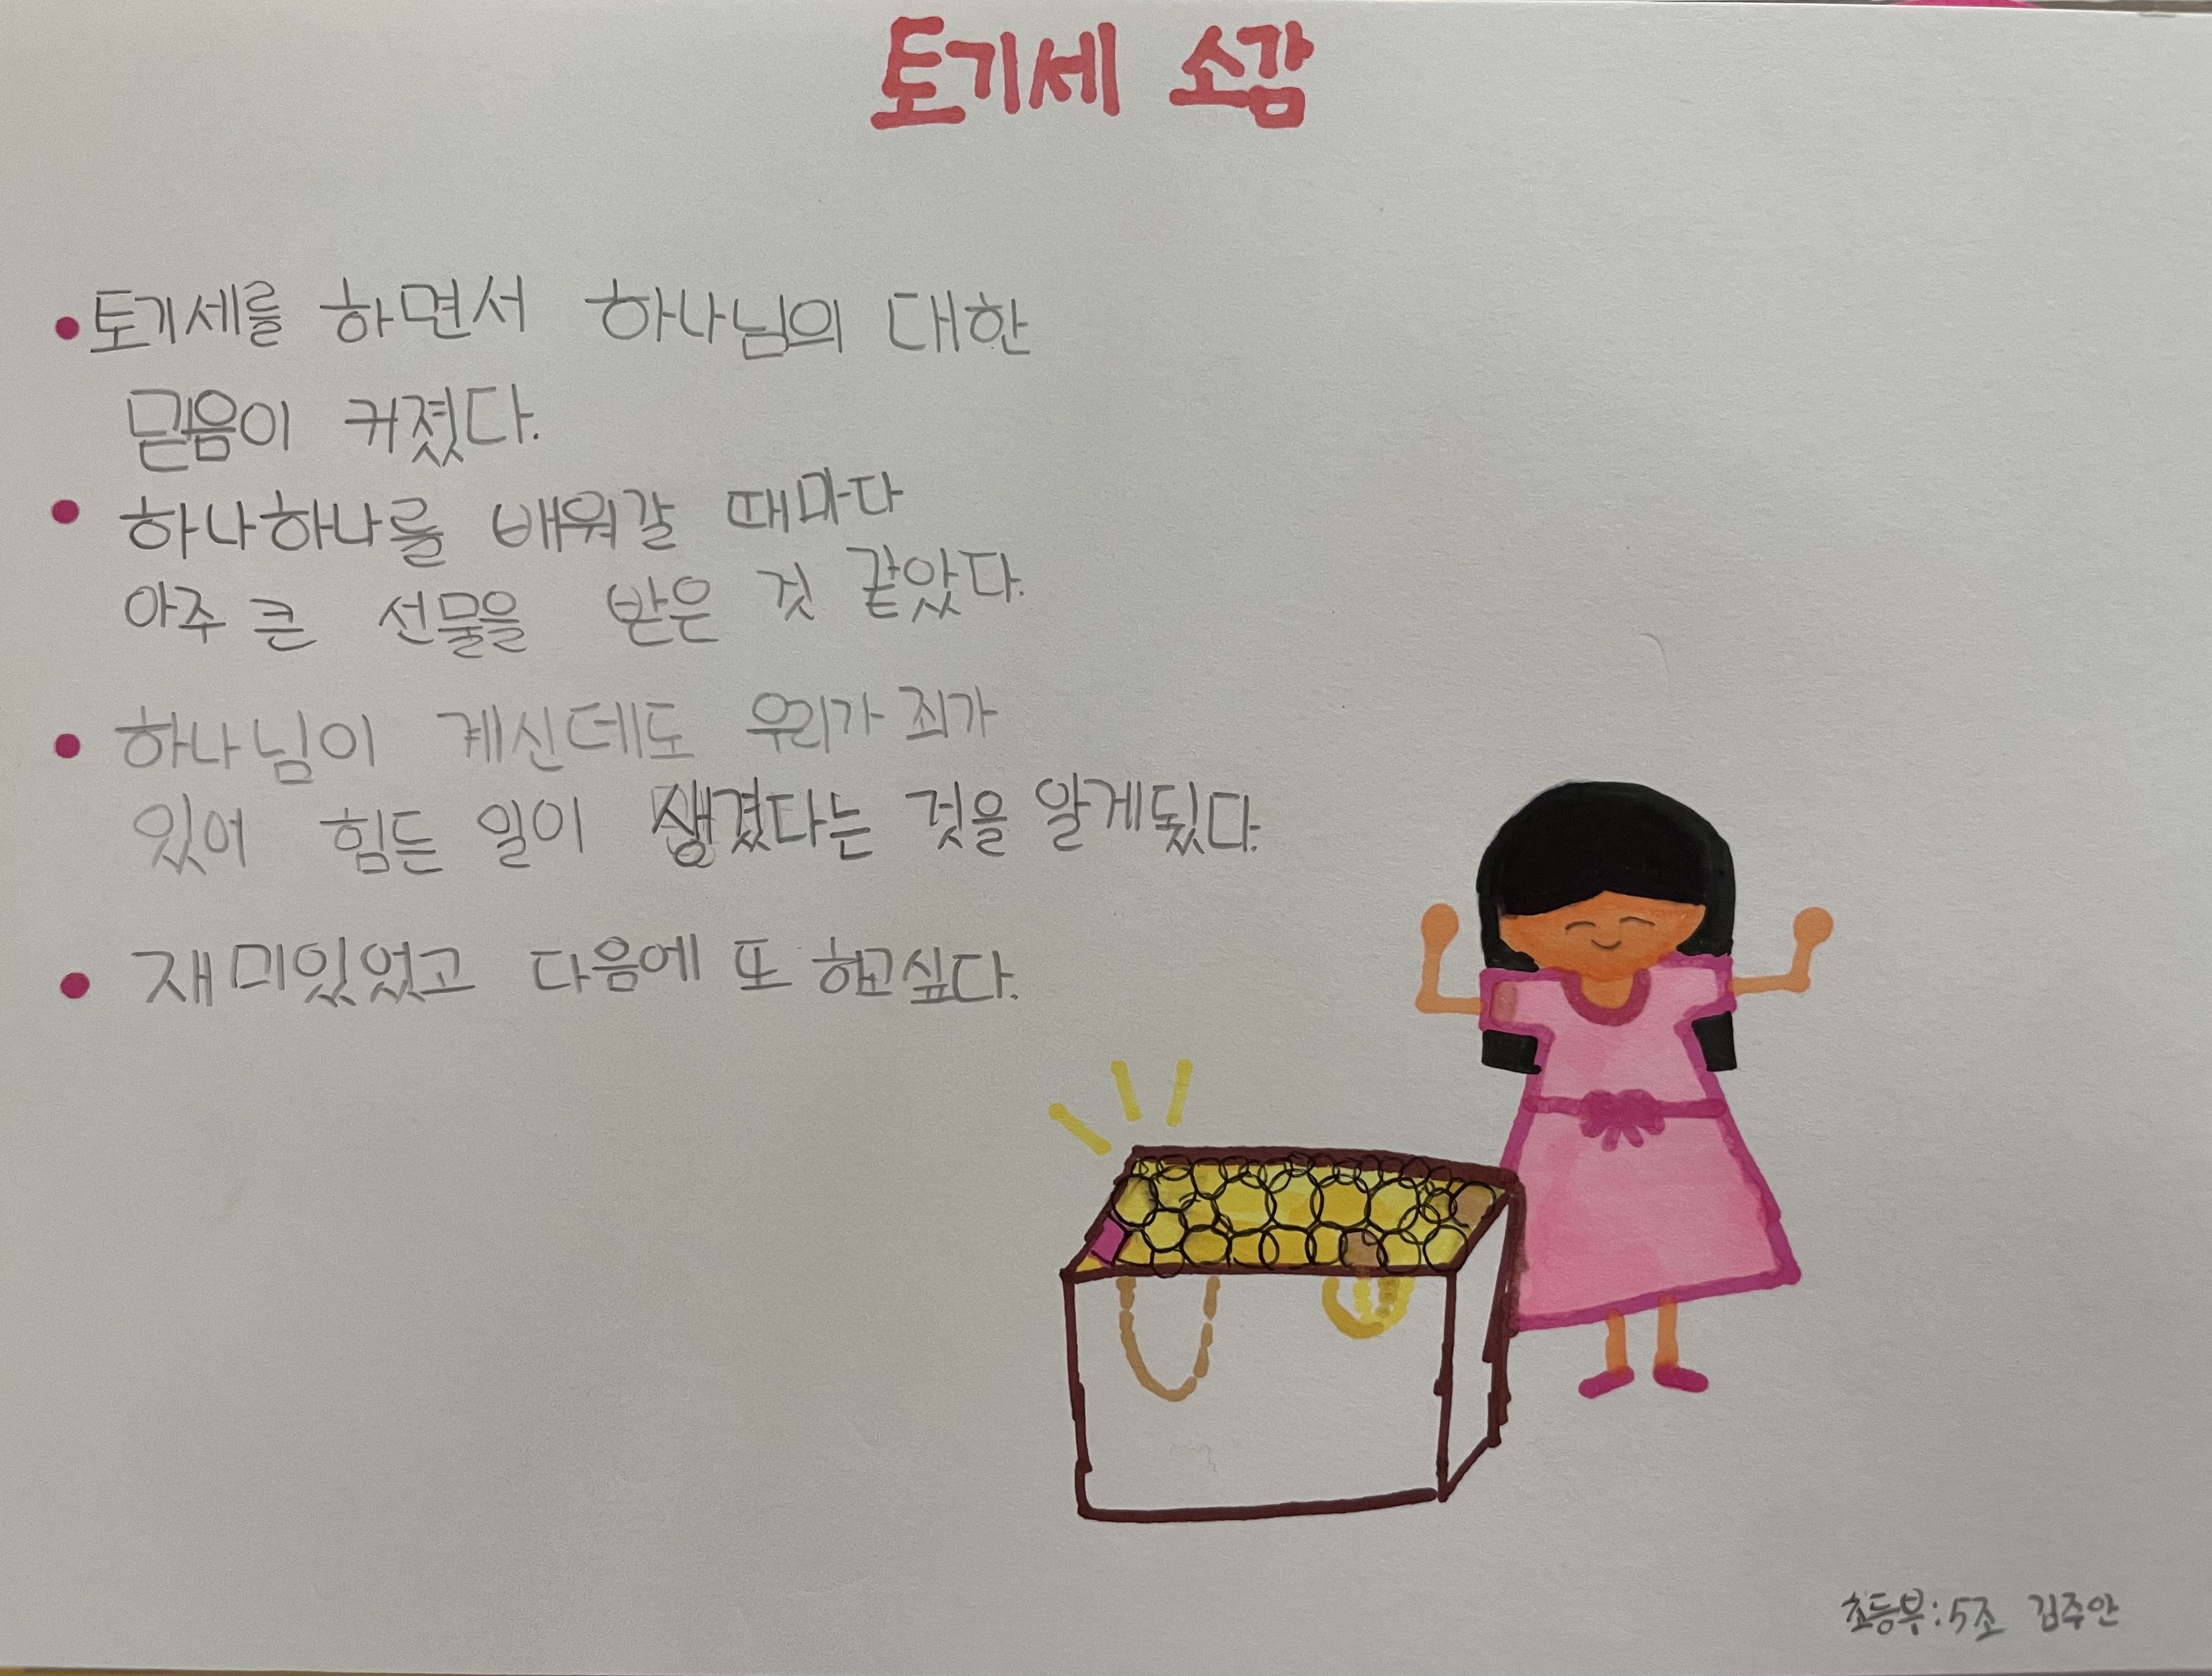 토기세 소감
토기세를 하면서 하나님의 대한
믿음이 커졌다.
하나하나를 배워갈 때마다
아주 큰 선물을 받은 것 같았다.
하나님이 계신데도 우리가 죄가
있어 힘든 일이 생겼다는 것을 알게됬다.
재미있었고 다음에 또 하고싶다.
초등부:5조 김주안